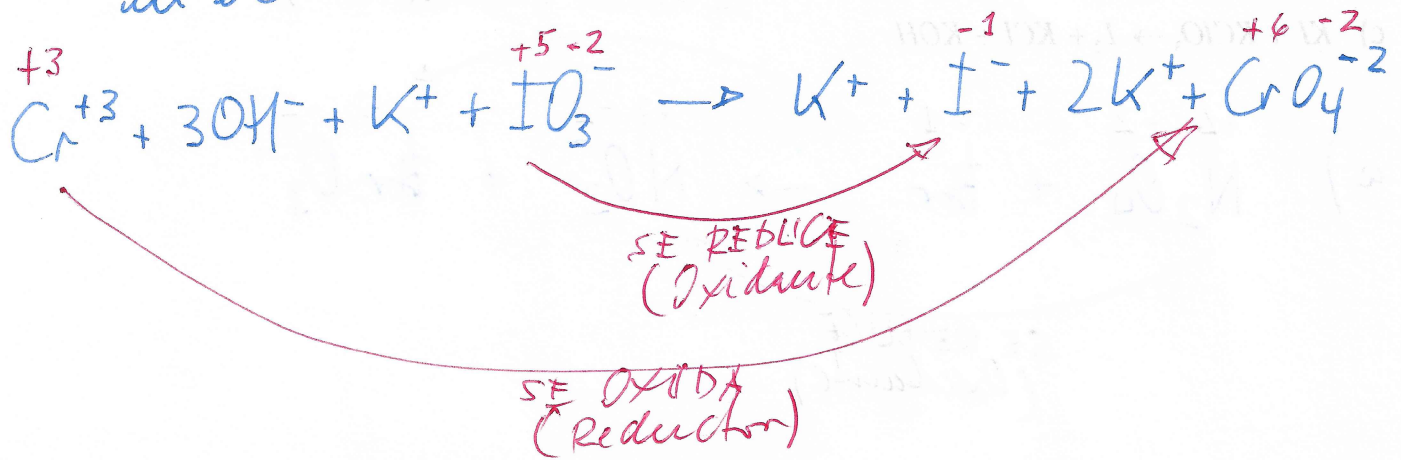 +3 +5 -2 -1 +6 -2
Cr⁺³ + 3OH⁻ + K⁺ + IO₃⁻ → K⁺ + I⁻ + 2K⁺ + CrO₄⁻²
SE REDUCE
(Oxidante)
SE OXIDA
(Reductor)